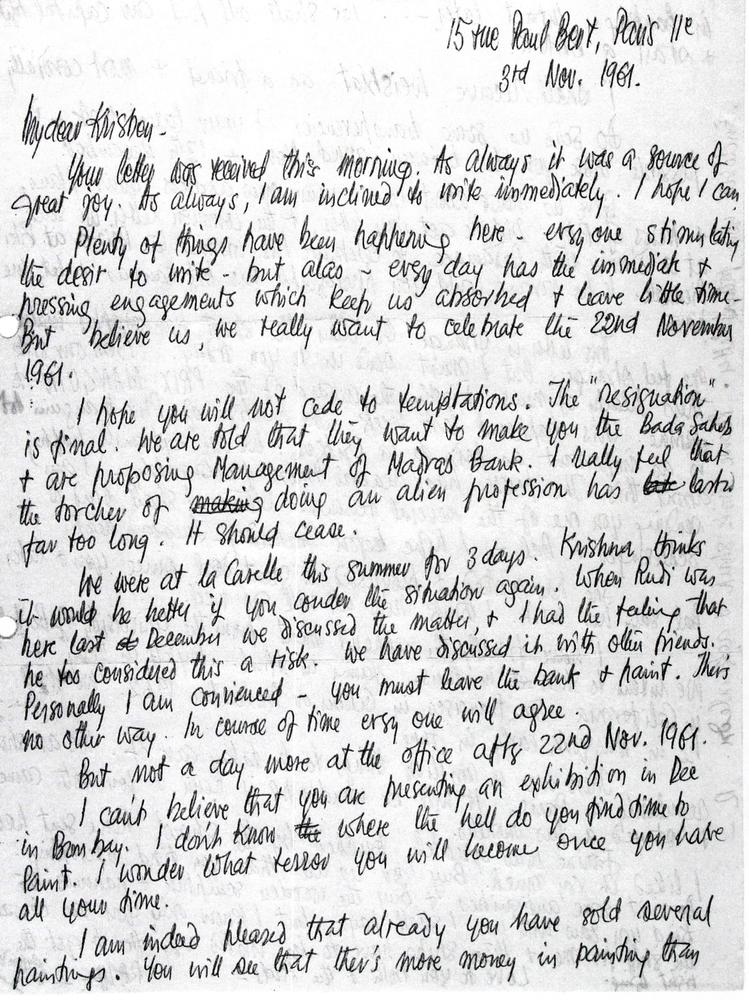 15 rue Paul Bert, Paris 11e
3rd Nov. 1961.
My dear Krishen -
Your letter was received this morning. As always it was a source of
great joy. As always, I am inclined to write immediately. I hope I can
Plenty of things have been happening here - ery one stimulating
the desir to write - but alas - evry day has the immediate +
pressing engagements which keep us absorbed + leave little time -
But believe us, we really want to celebrate the 22nd November
1961.
I hope you will not cede to temptations. The "resignation"
is final. We are told that they want to make you the Bada Sahib
+ are proposing Management of Madras Bank. I really feel that
the torcher of making doing an alien profession has lasted
far too long. It should cease.
We were at la Carelle this summer for 3 days. Krishna thinks
it would be better if you conder the situation again. When Rudi was
here last December we discussed the matter, + I had the feeling that
he too considered this a risk. We have discussed it with other friends.
Personally I am convienced - you must leave the bank + paint. Thers
no other way. In course of time ery one will agree.
But not a day more at the office aftr 22nd Nov. 1961.
I can't believe that you are presenting an exhibition in Dec
in Bombay. I don't know the where the hell do you find time to
paint. I wonder what terror you will become once you have
all your time.
I am indeed pleased that already you have sold several
paintings. You will see that ther's more money in painting than